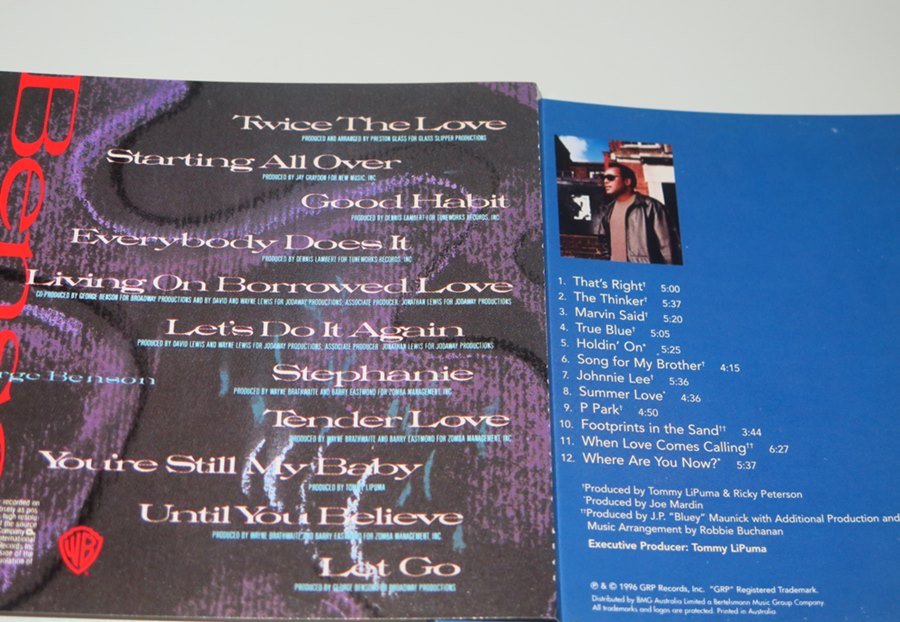 Benso
Twice The Love
PRODUCED AND ARRANGED BY PRESTON GLASS FOR GLASS SLIPPER PRODUCTIONS
Starting All Over
PRODUCED BY JAY GRAYDON FOR NEW MUSIC, INC
Good Habit
PRODUCED BY DENNIS LAMBERT FOR TUNEWORKS RECORDS, INC
Everybody Does It
PRODUCED BY DENNIS LAMBERT FOR TUNEWORKS RECORDS, INC
Living On Borrowed Love
CO-PRODUCED BY GEORGE BENSON FOR BROADWAY PRODUCTIONS AND BY DAVID AND WAYNE LEWIS FOR JODAWAY PRODUCTIONS; ASSOCIATE PRODUCER: JONATHAN LEWIS FOR JODAWAY PRODUCTIONS
Let's Do It Again
PRODUCED BY DAVID LEWIS AND WAYNE LEWIS FOR JODAWAY PRODUCTIONS; ASSOCIATE PRODUCER: JONATHAN LEWIS FOR JODAWAY PRODUCTIONS
rge Benson
Stephanie
PRODUCED BY WAYNE BRATHWAITE AND BARRY EASTMOND FOR ZOMBA MANAGEMENT, INC
Tender Love
PRODUCED BY WAYNE BRATHWAITE AND BARRY EASTMOND FOR ZOMBA MANAGEMENT, INC
You're Still My Baby
PRODUCED BY TOMMY LIPUMA
Until You Believe
PRODUCED BY WAYNE BRATHWAITE AND BARRY EASTMOND FOR ZOMBA MANAGEMENT, INC
Let Go
PRODUCED BY GEORGE BENSON FOR BROADWAY PRODUCTIONS
recorded on
as pos
high resolu
the source
Company
international
Records, Inc
side of the
WB
1. That's Right† 5:00
2. The Thinker† 5:37
3. Marvin Said† 5:20
4. True Blue† 5:05
5. Holdin' On* 5:25
6. Song for My Brother† 4:15
7. Johnnie Lee† 5:36
8. Summer Love* 4:36
9. P Park† 4:50
10. Footprints in the Sand†† 3:44
11. When Love Comes Calling†† 6:27
12. Where Are You Now?* 5:37
†Produced by Tommy LiPuma & Ricky Peterson
*Produced by Joe Mardin
††Produced by J.P. "Bluey" Maunick with Additional Production and
Music Arrangement by Robbie Buchanan
Executive Producer: Tommy LiPuma
℗ & © 1996 GRP Records, Inc. "GRP" Registered Trademark.
Distributed by BMG Australia Limited a Bertelsmann Music Group Company.
All trademarks and logos are protected. Printed in Australia.